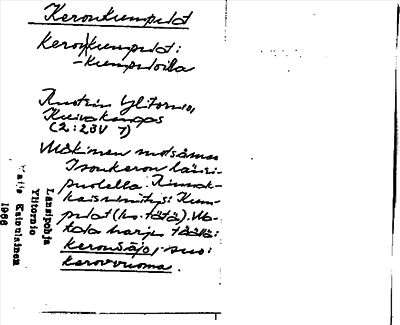 Keronkumpulat
Keron|kumpulat:
-kumpuloilla
Ruotsin Ylitornio,
Kuivakangas
(2:23V 7)
Mäkinen metsämaa
Isonkeron länsi-
puolella. Rinnak-
kaisnimitys: Kum-
pulat (ks. tätä). Ma-
tala harju täällä:
Keronsäjo, suo:
Keronvuoma.
Länsipohja
Ylitornio
Kaija Kainulainen
1966